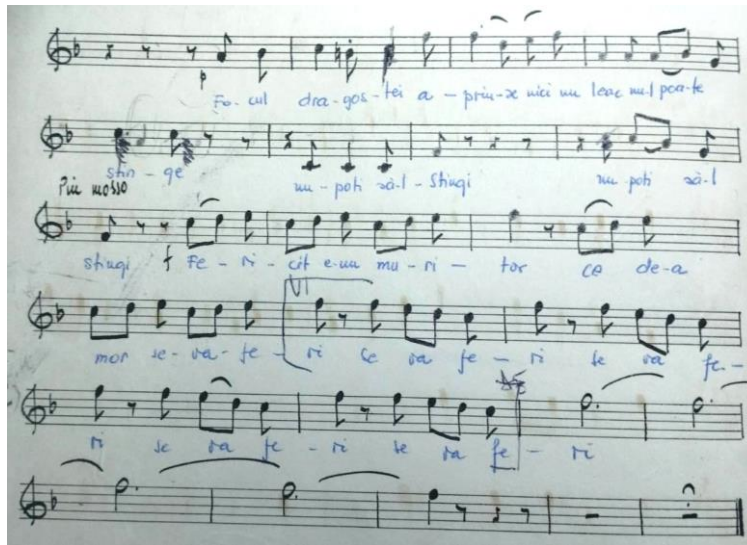 p
Fo-cul dra-gos-tei a-prin-s nici un leac nu-l poa-te
stin-ge nu-poti să-l-Stingi nu-poti să-l
Piu mosso
stingi f Fe-ri-cit e-un mu-ri-tor ce de-a
VI
mor se-va-fe-ri se va fe-ri se va fe-
ri se va fe-ri se va fe-ri